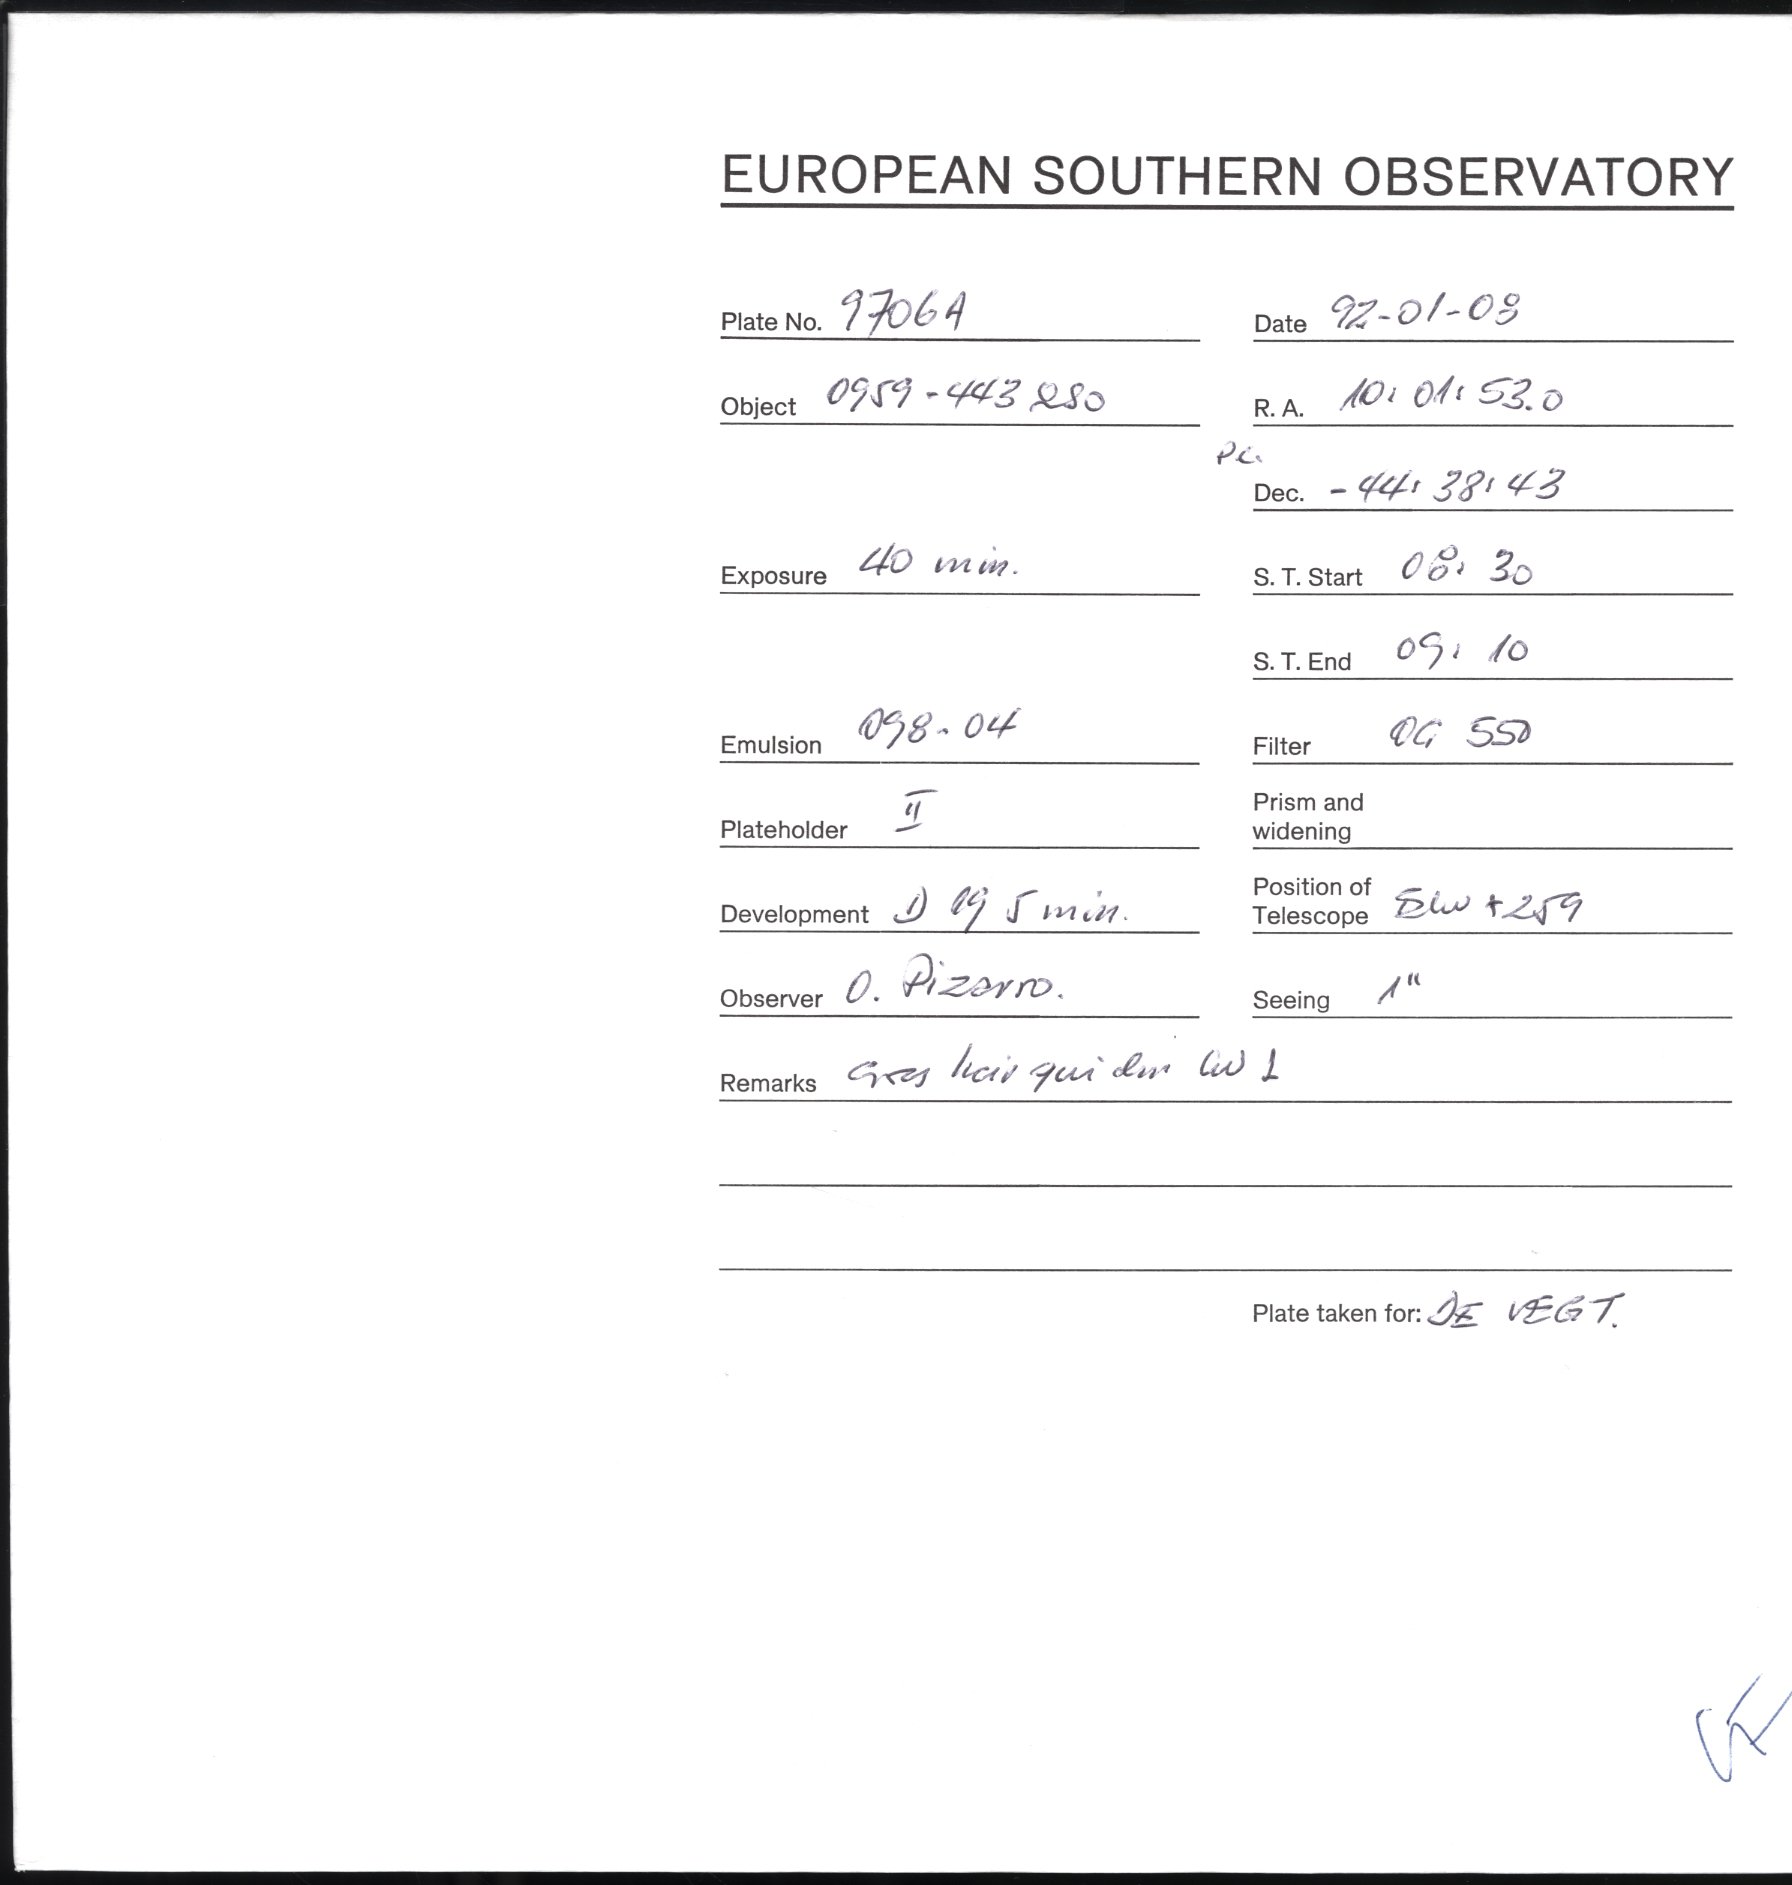 EUROPEAN SOUTHERN OBSERVATORY
Plate No. 9706A
Date 92-01-08
Object 0959-443 QSO
R. A. 10: 01: 53.0
Dec. -44: 38: 43
Exposure 40 min.
S. T. Start 08: 30
S. T. End 09: 10
Emulsion 098-04
Filter OG 550
Plateholder II
Prism and
widening
Development D 19 5 min.
Position of
Telescope +259
Observer O. Pizarro.
Seeing 1"
Remarks Cross hair
Plate taken for: DE VEGT.